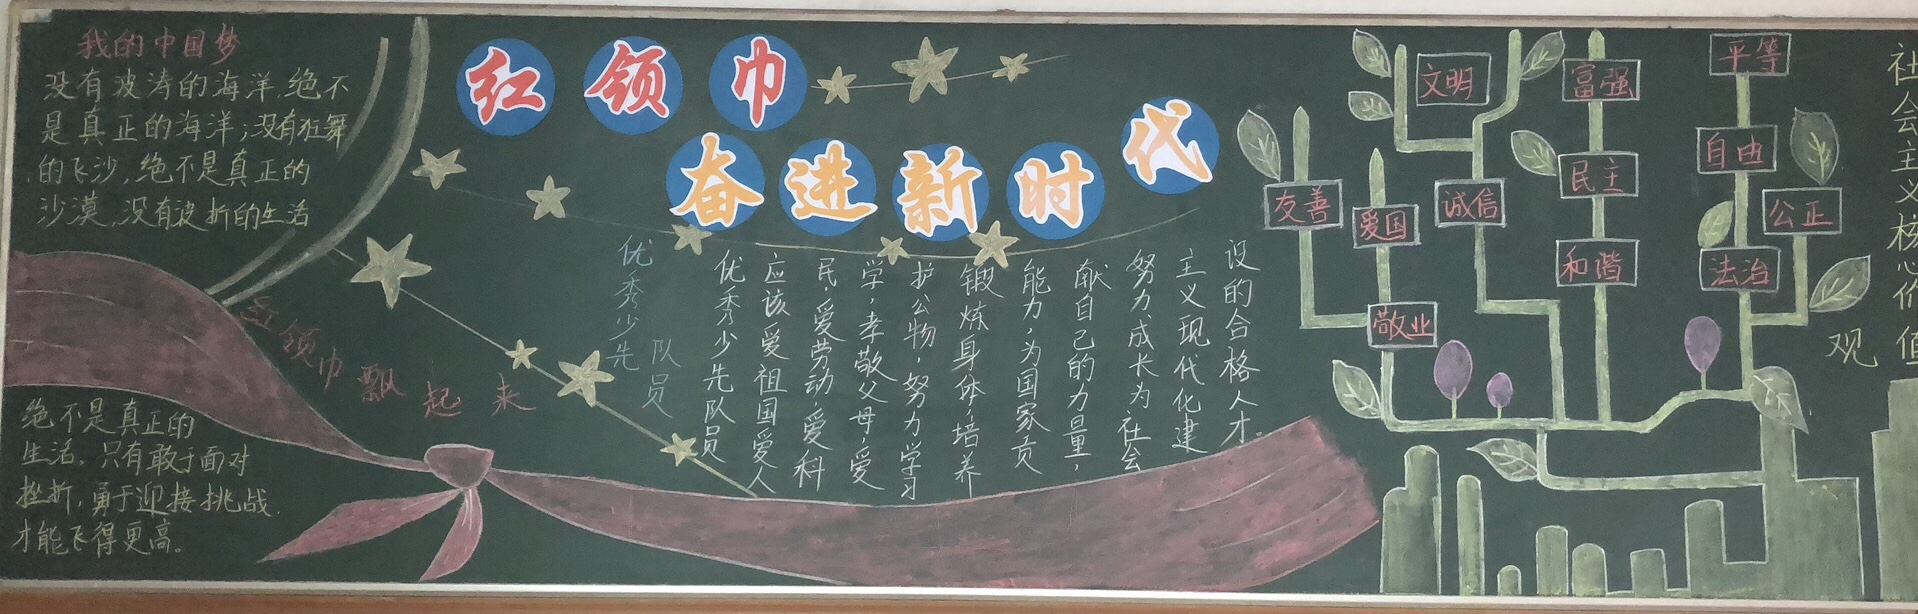 我的中国梦
没有波涛的海洋,绝不
是真正的海洋;没有狂舞
的飞沙,绝不是真正的
沙漠,没有波折的生活
绝不是真正的
生活,只有敢于面对
挫折,勇于迎接挑战.
才能飞得更高。
红领巾飘起来
红领巾
奋进新时代
优秀少先
队员
优秀少先队员
应该爱祖国爱人
民,爱劳动,爱科
学,孝敬父母,爱
护公物,努力学习
锻炼身体,培养
能力,为国家贡
献自己的力量,
努力成长为社会
主义现代化建
设的合格人才。
文明
富强
平等
自由
民主
友善
爱国
诚信
公正
和谐
法治
敬业
社会主义核心价值
观